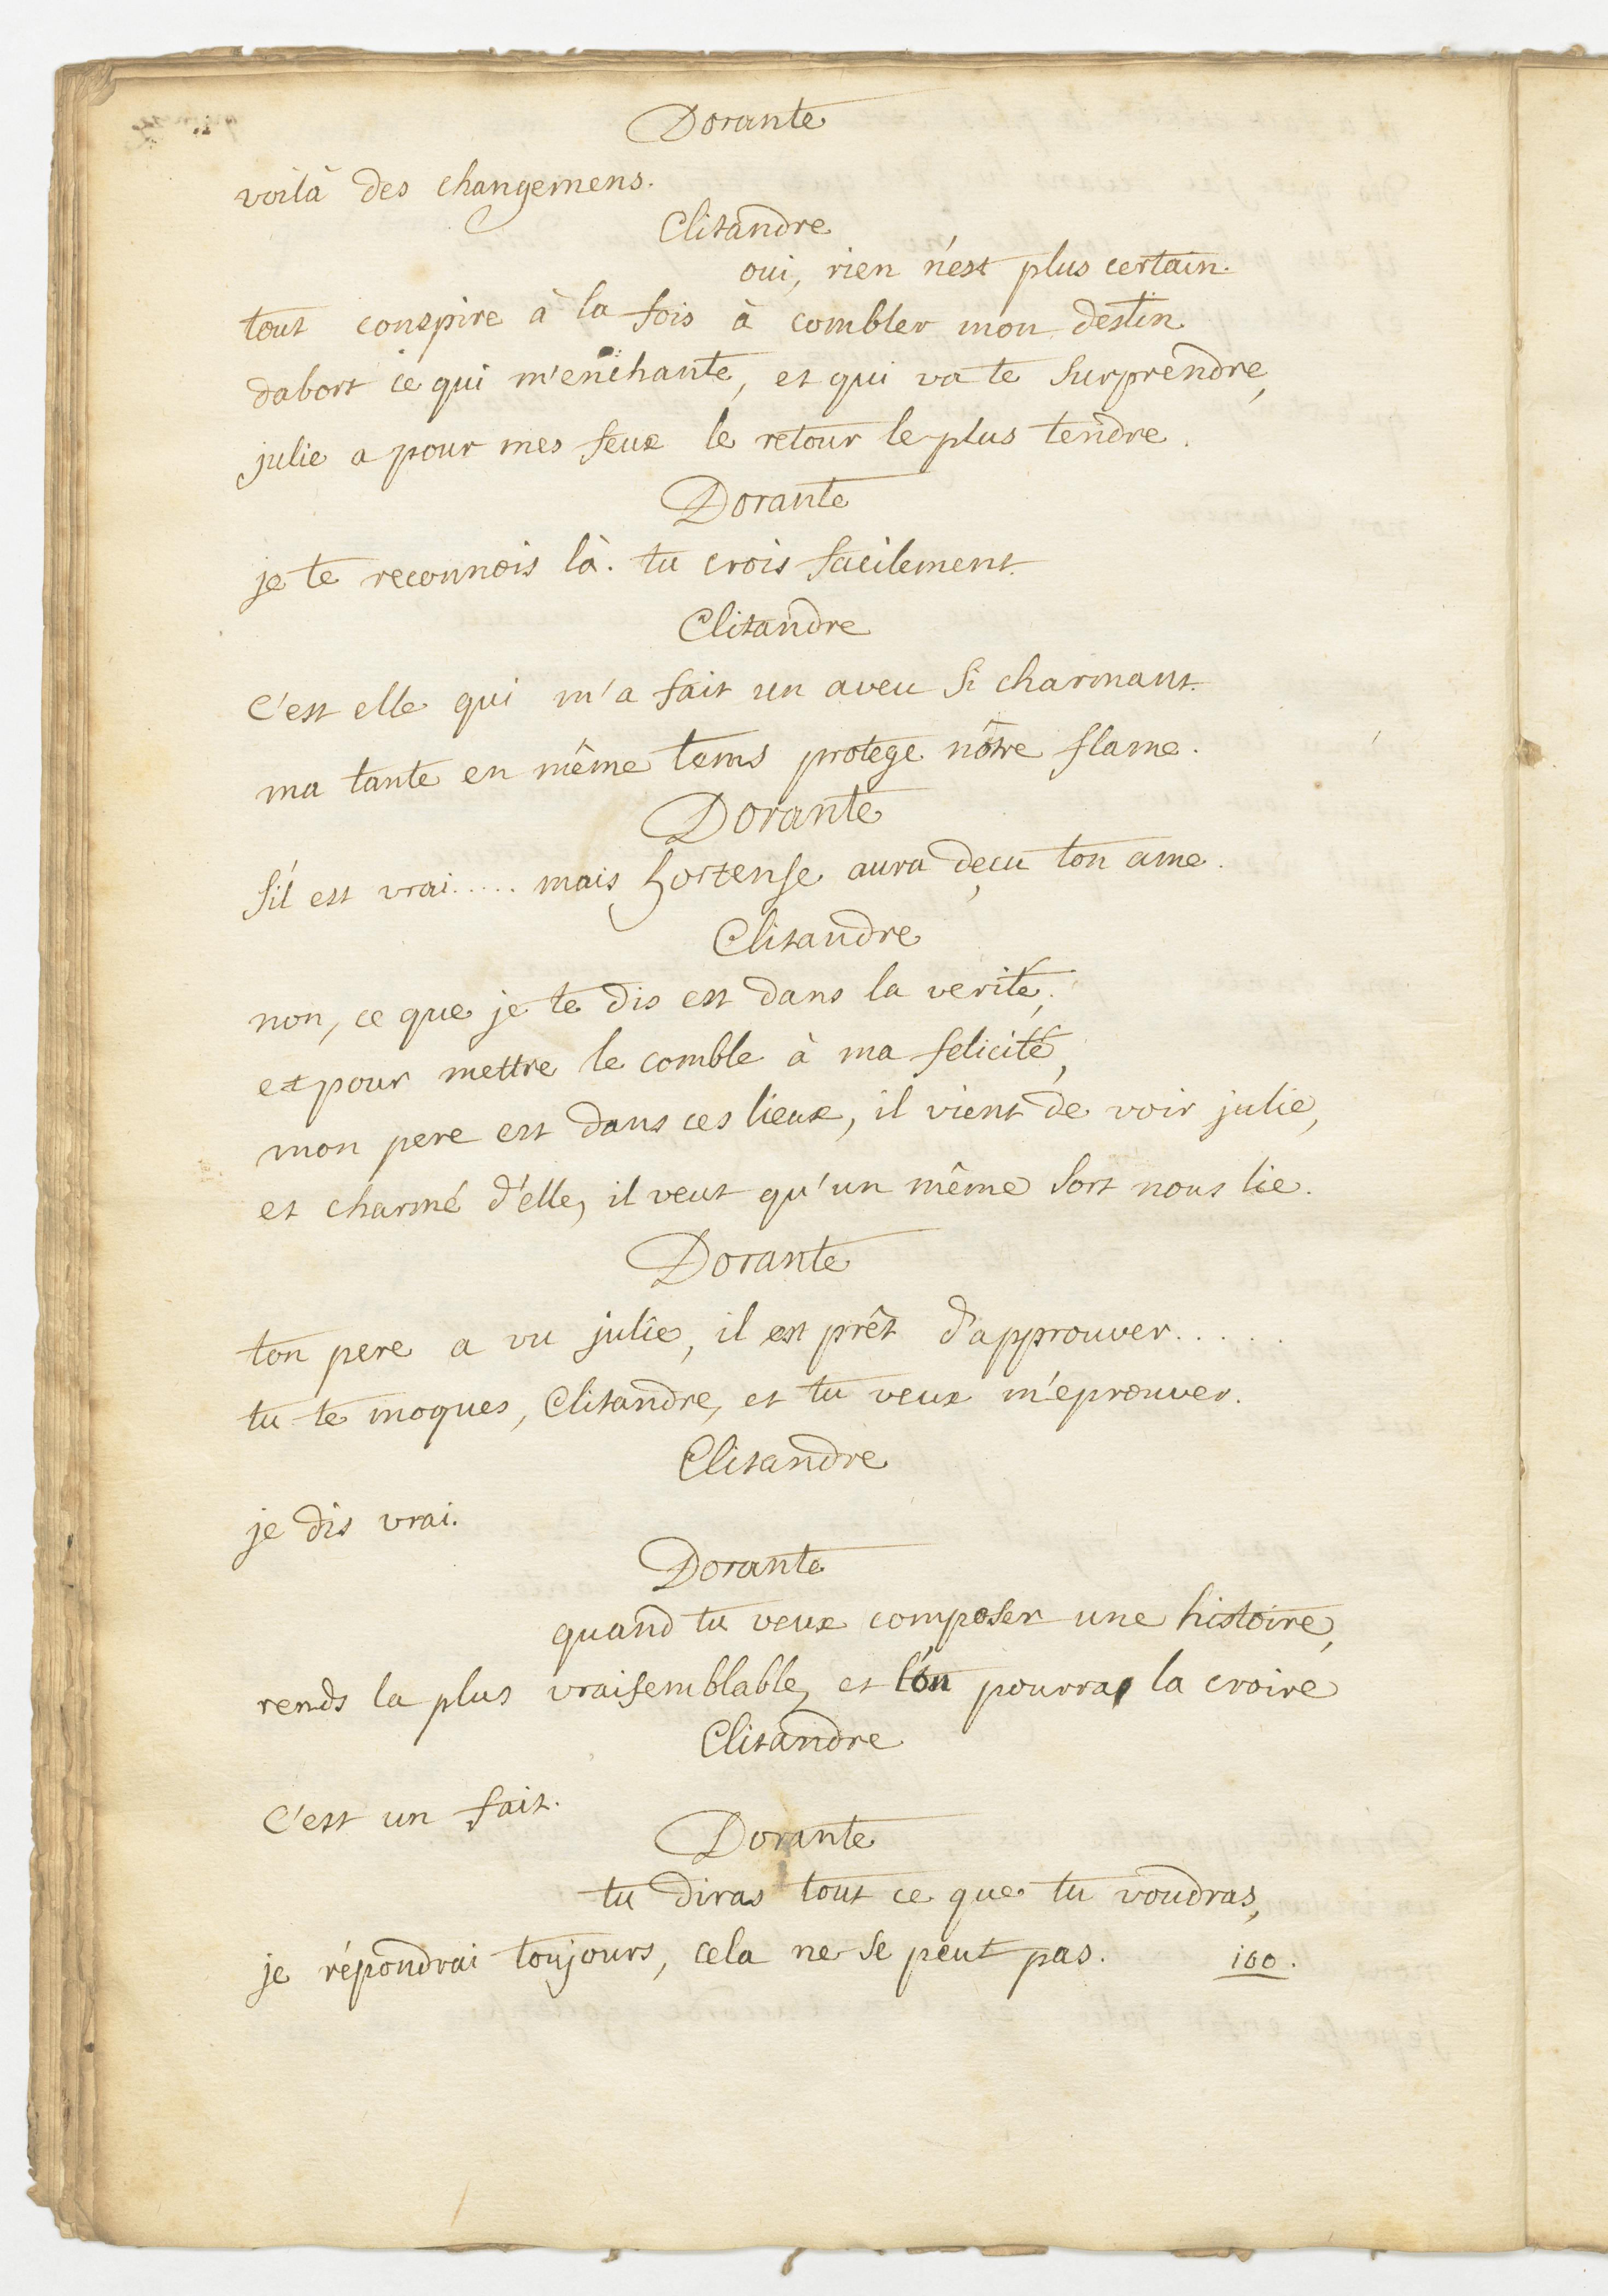 Dorante
voilà des changemens.
Clitandre
oui, rien n'est plus certain.
tout conspire à la fois à combler mon destin
dabort ce qui m'enchante, et qui va te surprendre,
julie a pour mes feux le retour le plus tendre.
Dorante
je te reconnois là. tu crois facilement.
Clitandre
C'est elle qui m'a fait un aveu si charmant.
ma tante en même tems protege nôtre flame.
Dorante
s'il est vrai..... mais hortense aura deçu ton ame.
Clitandre
non, ce que je te dis est dans la verité;
et pour mettre le comble à ma felicité,
mon pere est dans ces lieux, il vient de voir julie,
et charmé d'elle, il veut qu'un même sort nous lie.
Dorante
ton pere a vu julie, il est prêt d'approuver.....
tu te moques, Clitandre, et tu veux m'eprouver.
Clitandre
je dis vrai.
Dorante
quand tu veux composer une histoire,
rends la plus vraisemblable, et l'on pourra la croire
Clitandre
C'est un fait.
Dorante
tu diras tout ce que tu voudras,
je répondrai toujours, cela ne se peut pas. 160.